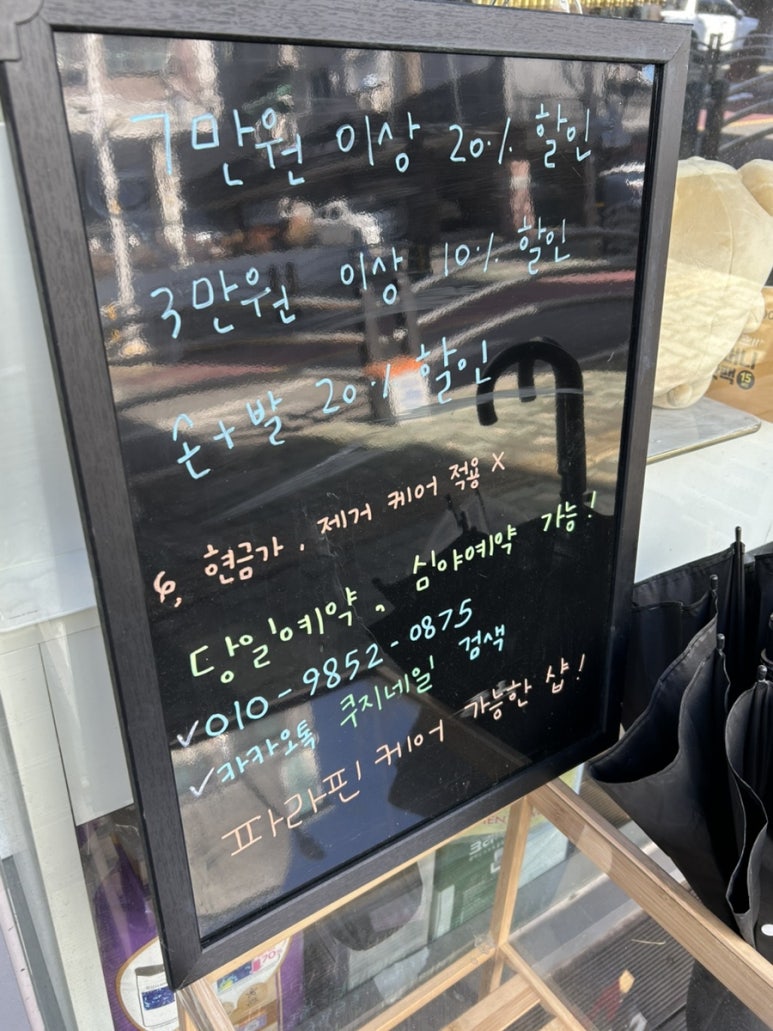 7만원 이상 20% 할인
3만원 이상 10% 할인
손+발 20% 할인
현금가, 제거 케어 적용 X
당일예약, 심야예약 가능!
✓010-9852-0875
✓카카오톡 쿠지네일 검색
파라핀 케어 가능한 샵!
15
70